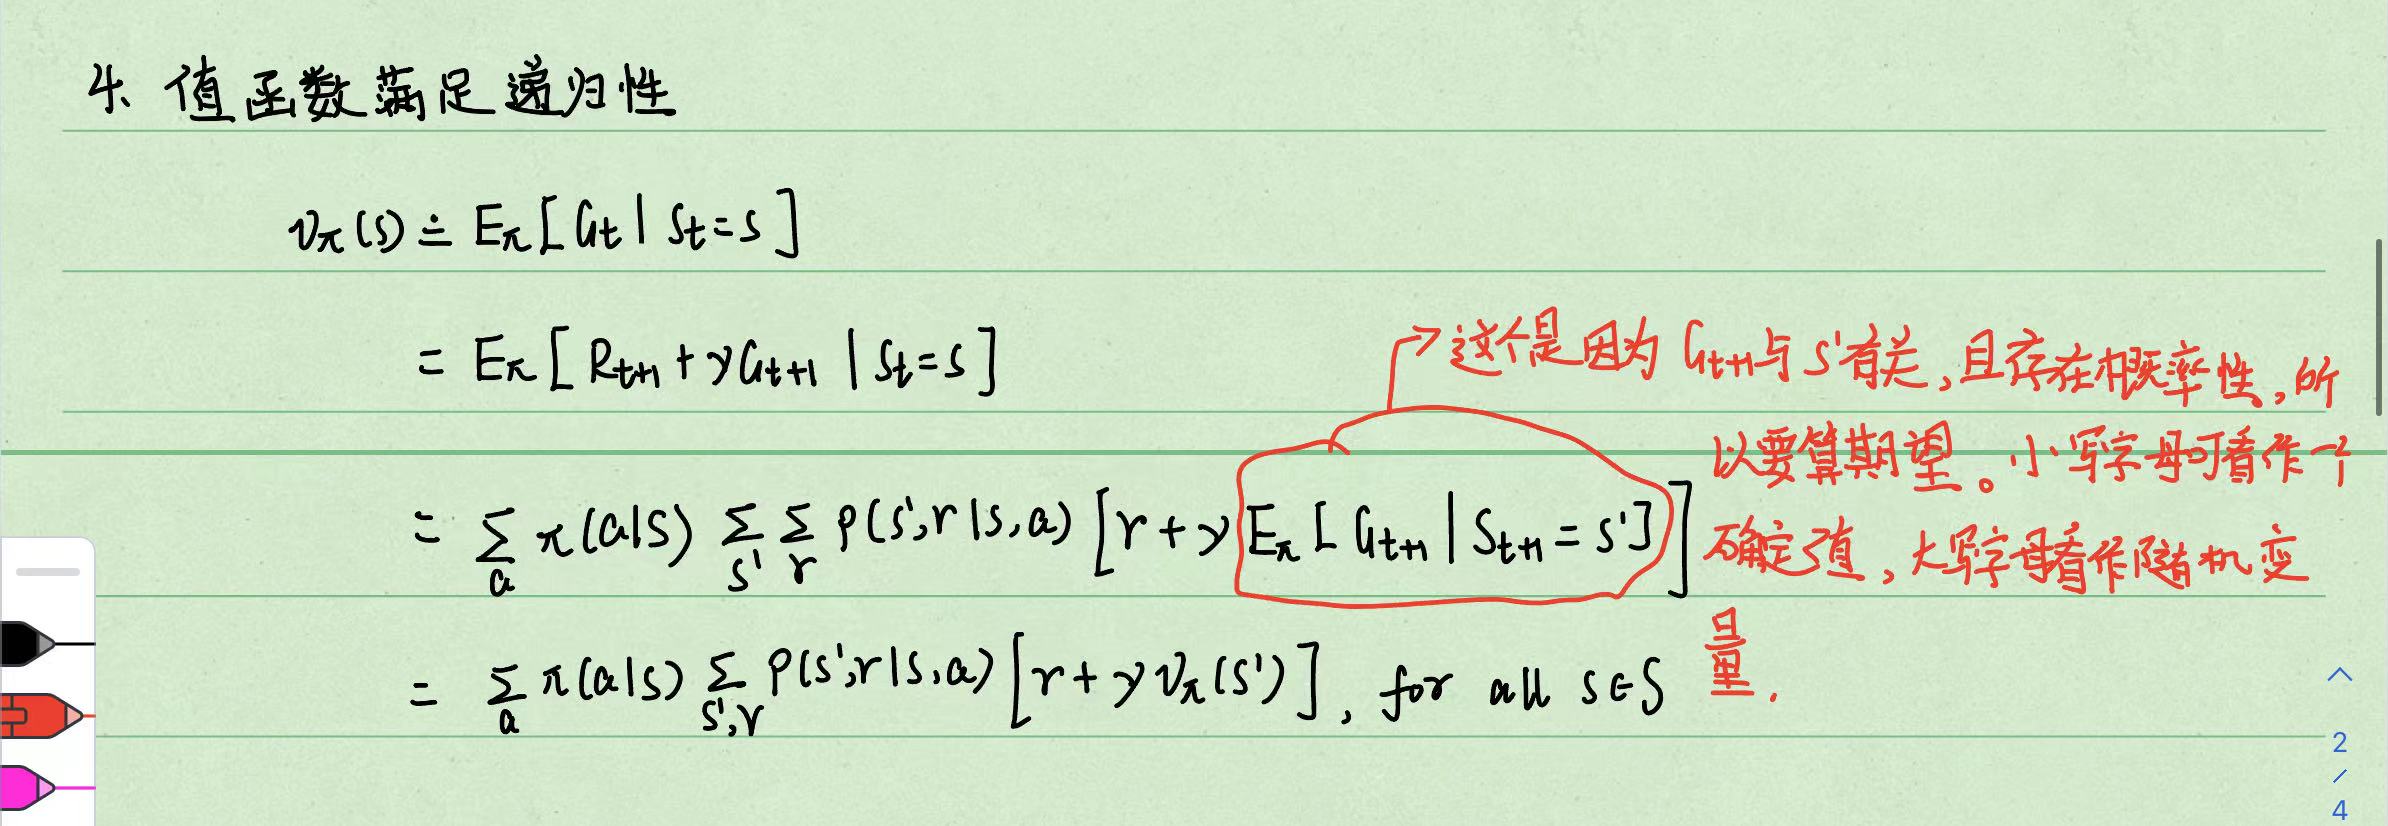 4、值函数满足递归性
vπ(s) ≐ Eπ[Gt | St=s]
= Eπ[Rt+1 + γGt+1 | St=s]
= Σa π(a|s) Σs' Σr p(s',r|s,a) [r + γ Eπ[Gt+1 | St+1 = s']]
= Σa π(a|s) Σs',r p(s',r|s,a) [r + γ vπ(s')], for all s∈S
→这个是因为 Gt+1与 s'有关,且存在概率性,所
以要算期望。小写字母可看作一个
确定值,大写字母看作随机变
量.
2
/
4